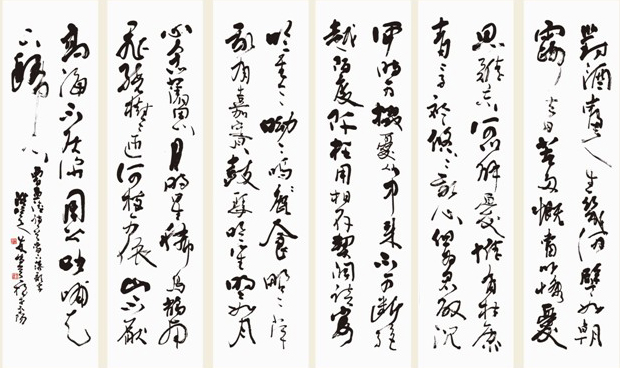 對酒當歌人生幾何譬如朝
露去日苦多慨當以慷憂
思難忘何以解憂惟有杜康
青青子衿悠悠我心但為君故沉
何時可掇憂從中來不可斷絕
越陌度阡枉用相存契闊談宴
吟至今呦呦鹿鳴食野之苹
我有嘉賓鼓瑟吹笙明明如月
心念舊恩月明星稀烏鵲南
飛繞樹三匝何枝可依山不厭
高海不厭深周公吐哺天
下歸心